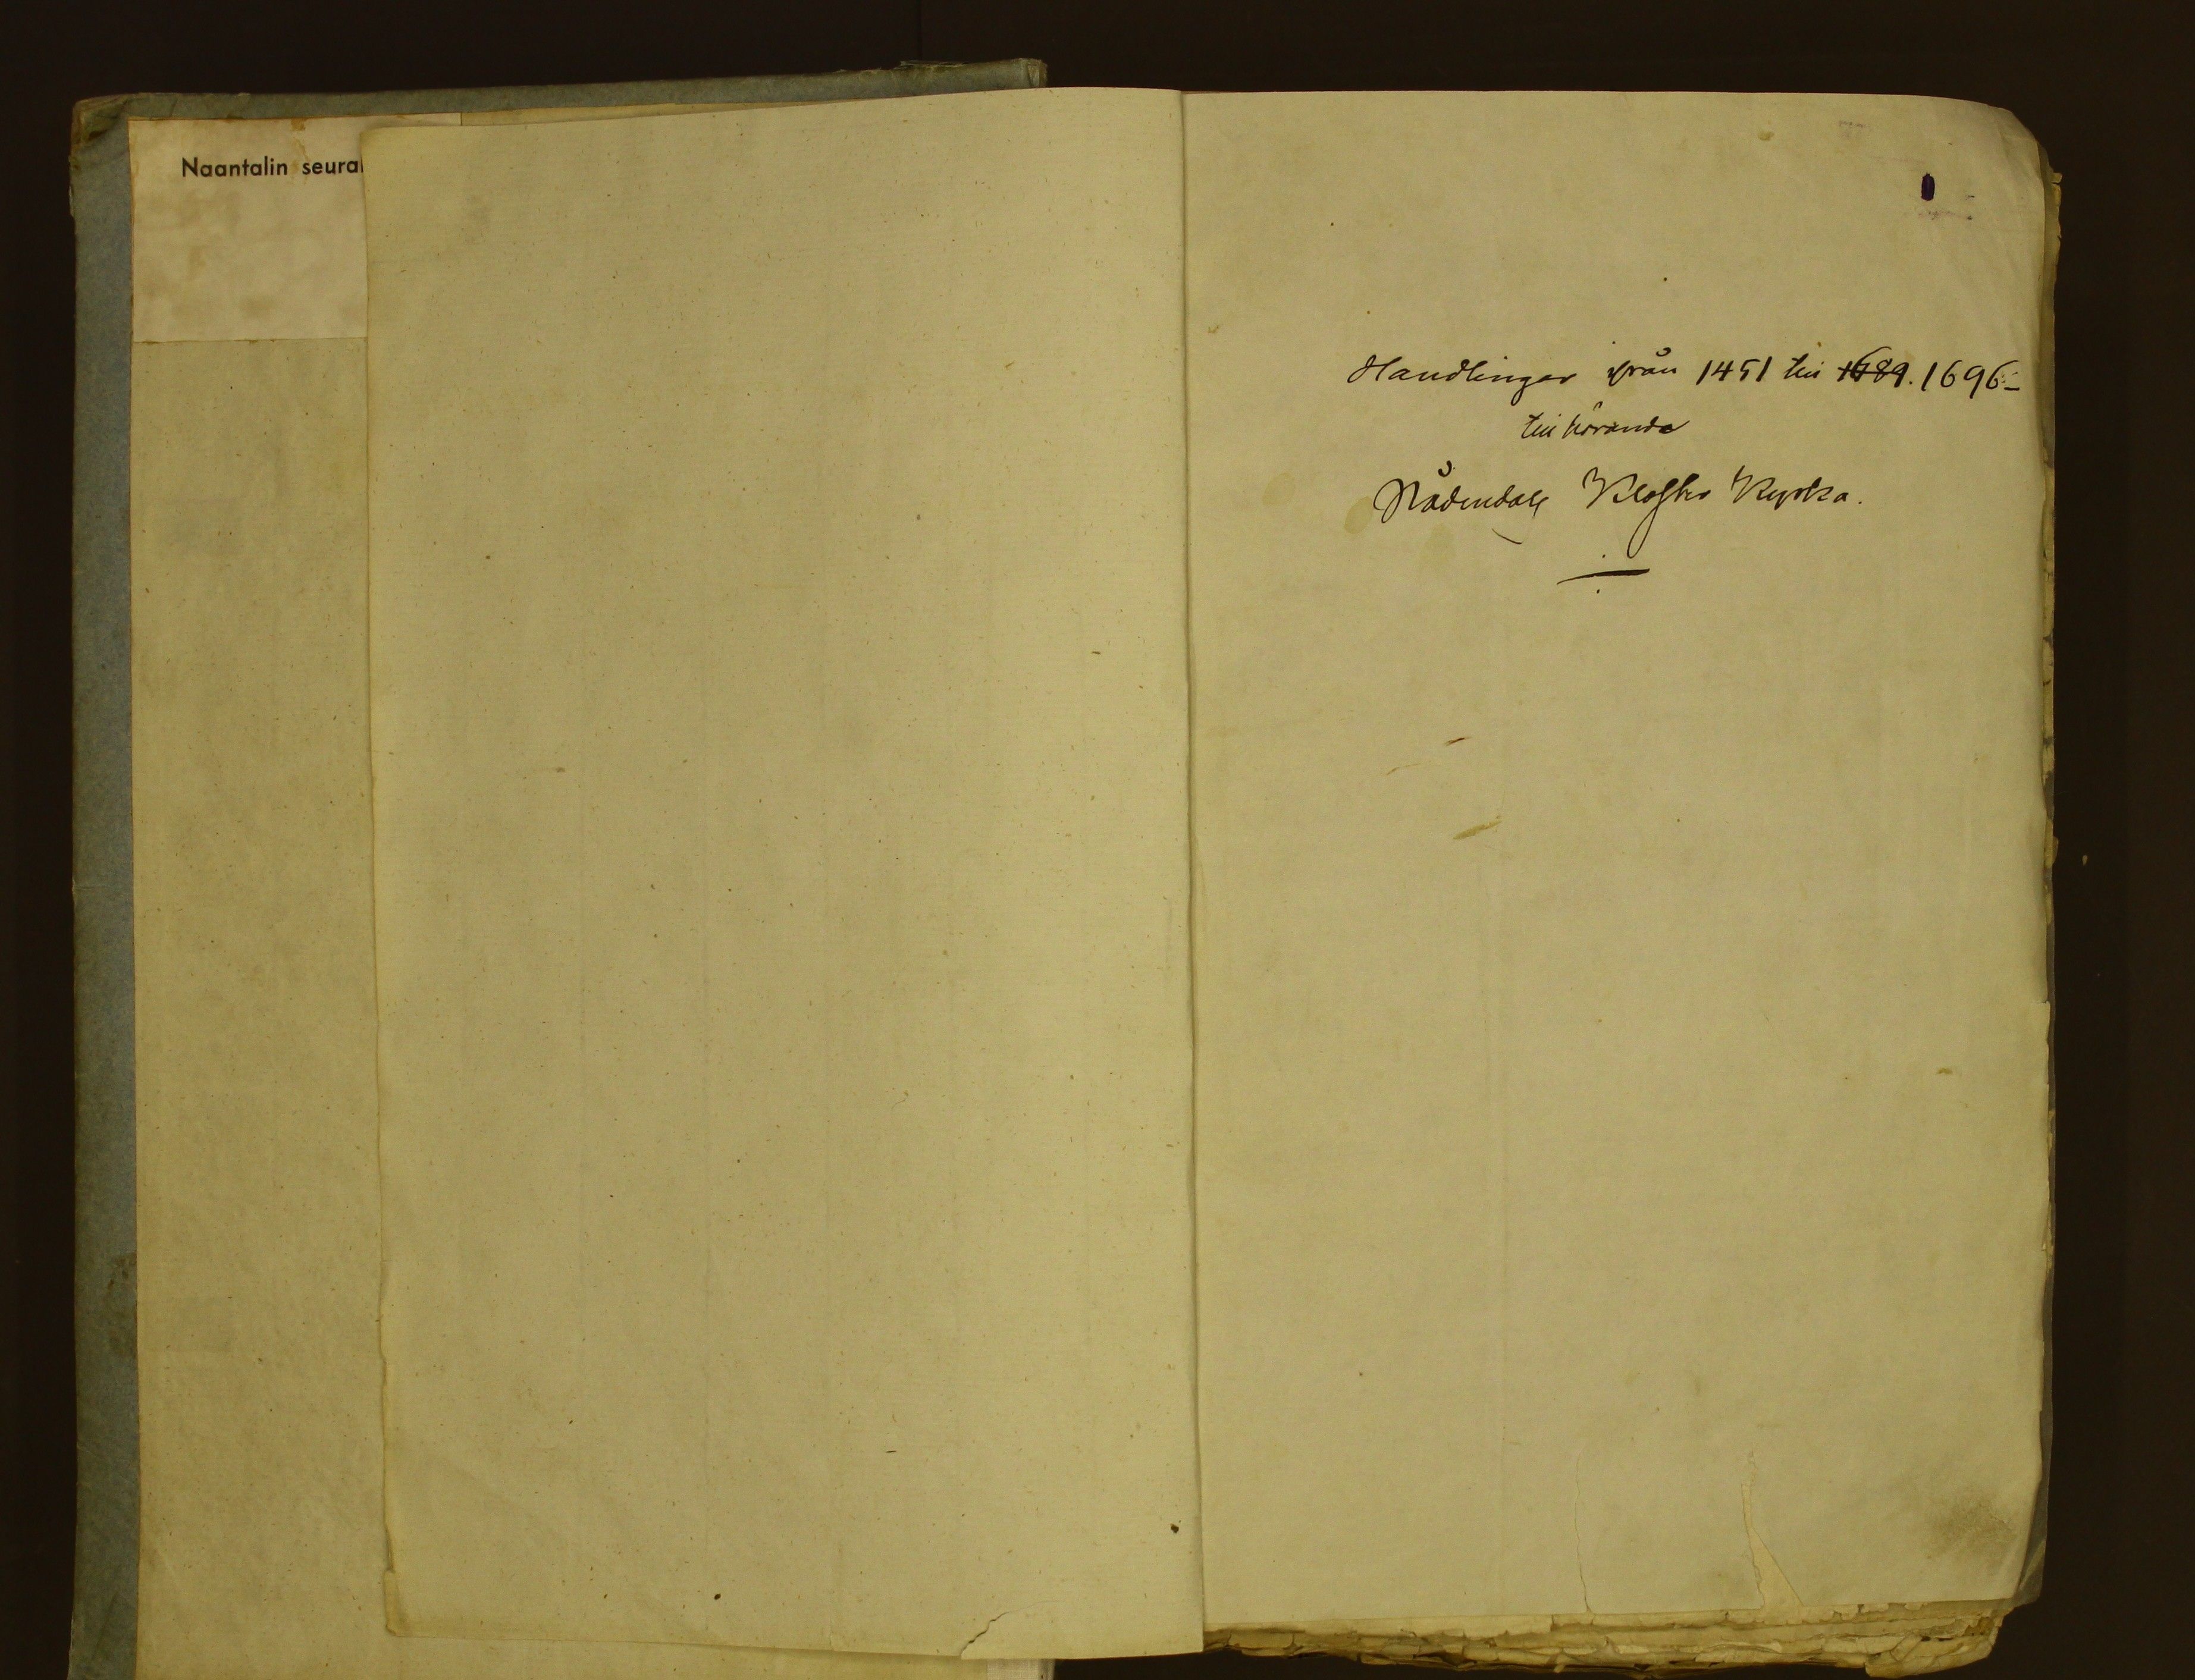 Naantalin seura
Handlingar från 1451 till 1689. 1696
till hörande
Nådendals Kloster Kyrka.